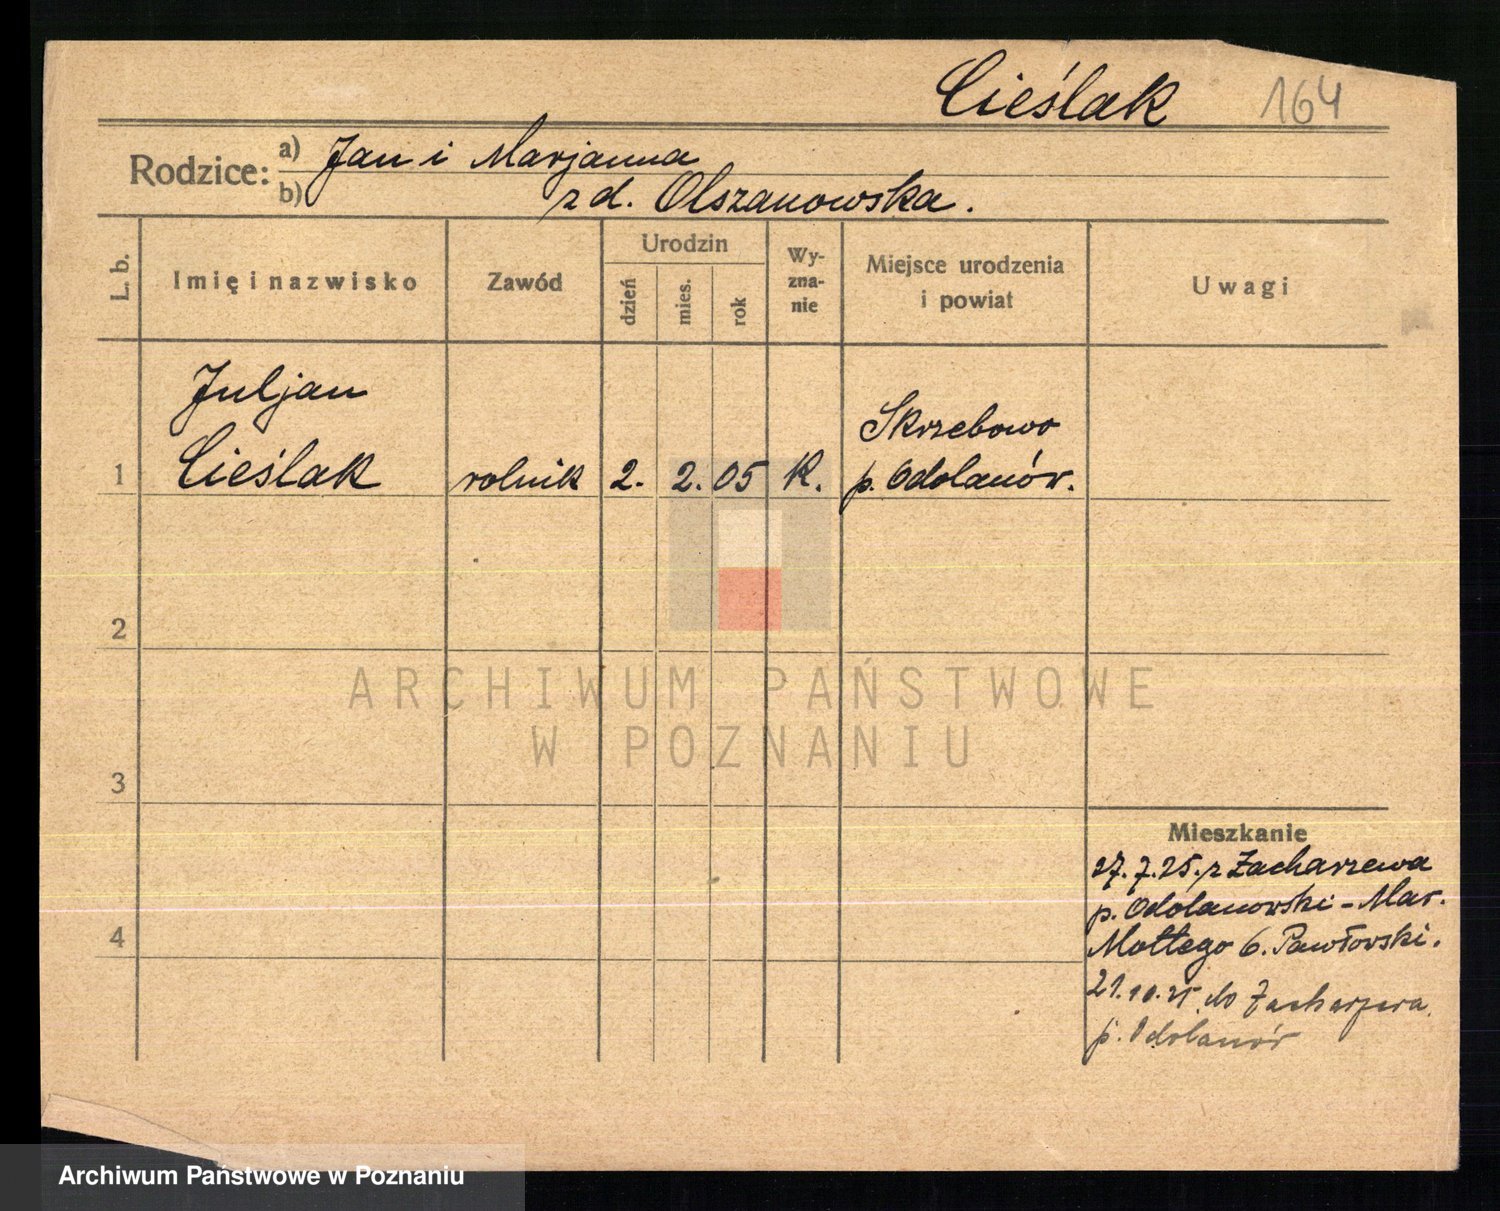 Cieślak 164
Rodzice: a) Jan i Marjanna
b) zd. Olszanowska.
L. b. Imię i nazwisko Zawód Urodzin dzień mies. rok Wyznanie Miejsce urodzenia i powiat Uwagi
Juljan
1 Cieślak rolnik 2. 2. 05 K. Skrzebowo
p. Odolanów.
2
3
4
Mieszkanie
27.7.25. z Zacharzewa
p. Odolanowski - Mar.
Mottego 6. Pawłowski.
21.10.25 do Zacharzewa
p. Odolanów
ARCHIWUM PAŃSTWOWE
W POZNANIU
Archiwum Państwowe w Poznaniu